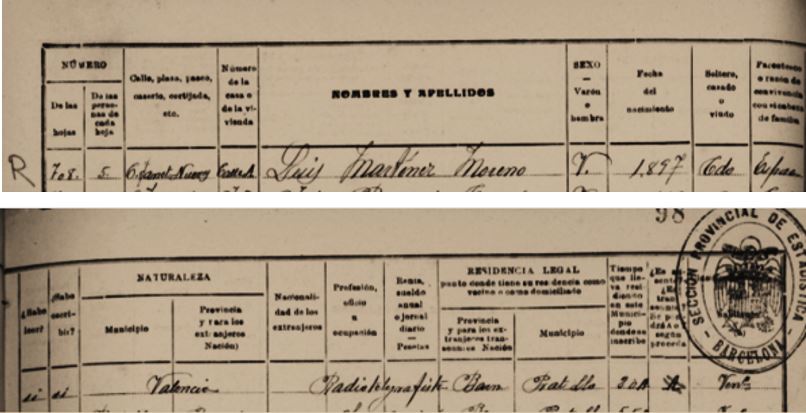 NÚMERO
De las hojas
De las personas de cada hoja
Calle, plaza, paseo, caserío, cortijada, etc.
Número de la casa o de la vivienda
NOMBRES Y APELLIDOS
SEXO — Varón o hembra
Fecha del nacimiento
Soltero, casado o viudo
Parentesco o razón de convivencia con el cabeza de familia
R 708. 5. Calle A Luis Martínez Moreno V. 1897 Cdo
98
¿Sabe leer?
¿Sabe escribir?
NATURALEZA
Municipio
Provincia y para los extranjeros Nación)
Nacionalidad de los extranjeros
Profesión, oficio u ocupación
Renta, sueldo anual o jornal diario — Pesetas
RESIDENCIA LEGAL
punto donde tiene su residencia como vecino o como domiciliado
Provincia y para los extranjeros transeuntes Nación
Municipio
Tiempo que lleva residiendo en este Municipio donde se inscribe
SECCIÓN PROVINCIAL DE ESTADÍSTICA
- BARCELONA -
si si Valencia Radiotelegrafista Barn Prat Llo 30 A